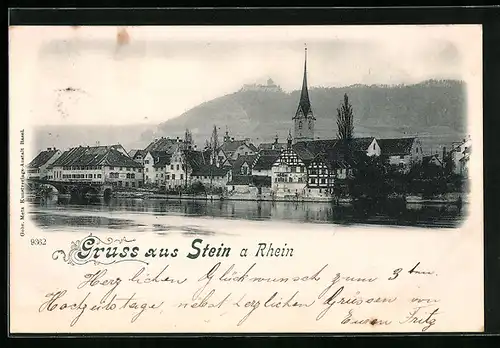 Gebr. Metz Kunstverlags-Anstalt Basel.
9362
Gruss aus Stein a Rhein
Herzlichen Glückwunsch zum 3ten
Hochzeitstage, nebst herzlichen Grüssen von
Eurem Fritz